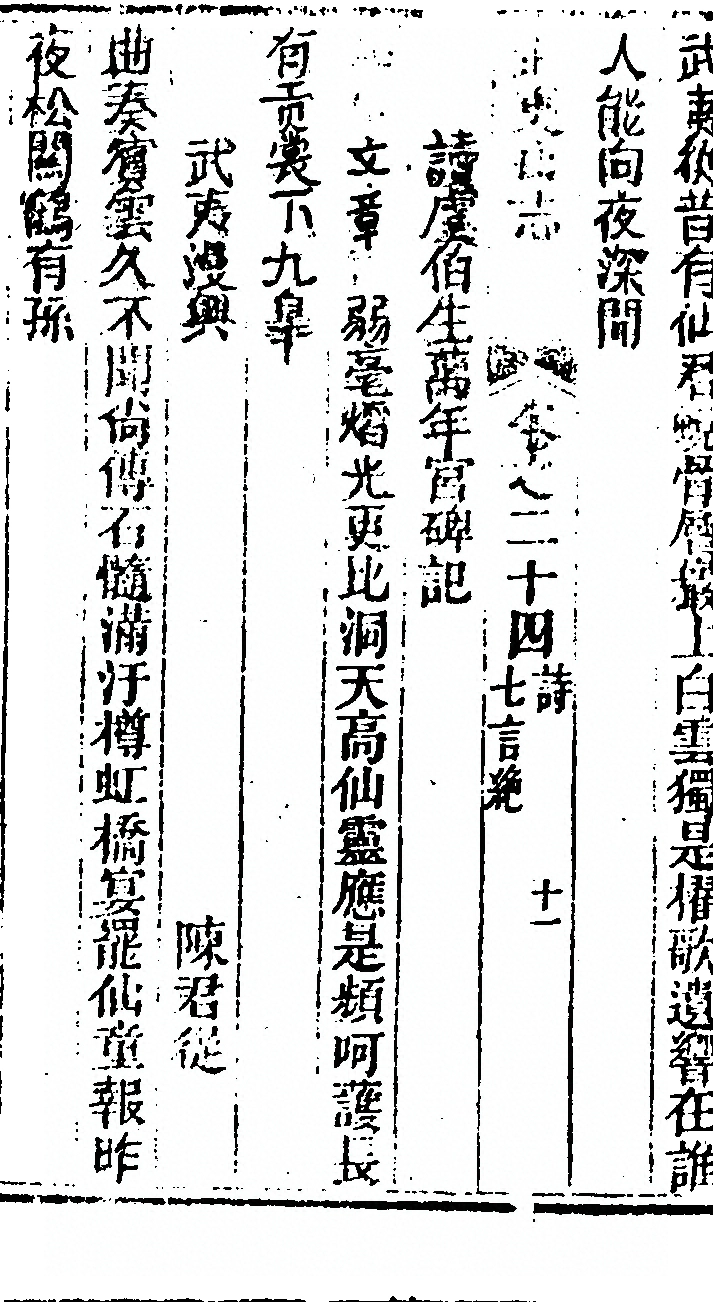 武夷欲昔有仙君蛻骨層巖上白雲獨是櫂歌遺響在誰
人能向夜深聞
山志
卷之二十四
詩
七言絶
十一
讀虞伯生萬年宮碑記
文章 弱毫熠光更比洞天高仙靈應是頻呵護長
有貢裳下九皋
武夷漫興
陳君從
曲奏賓雲久不聞尚傳石髓滿汙樽虹橋宴罷仙童報昨
夜松關鶴有孫